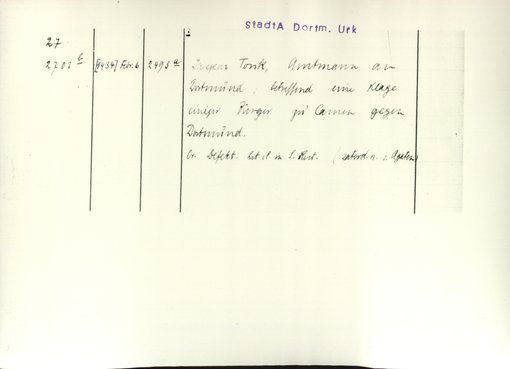 StadtA Dortm. Urk
27
2701 [1434] Febr. 6 2493 a Torck, Amtmann an
Dortmund, betreffend eine Klage
einiger Bürger zu Camen gegen
Dortmund.
Or. Defekt. Lit. cl. m. S. Rest.